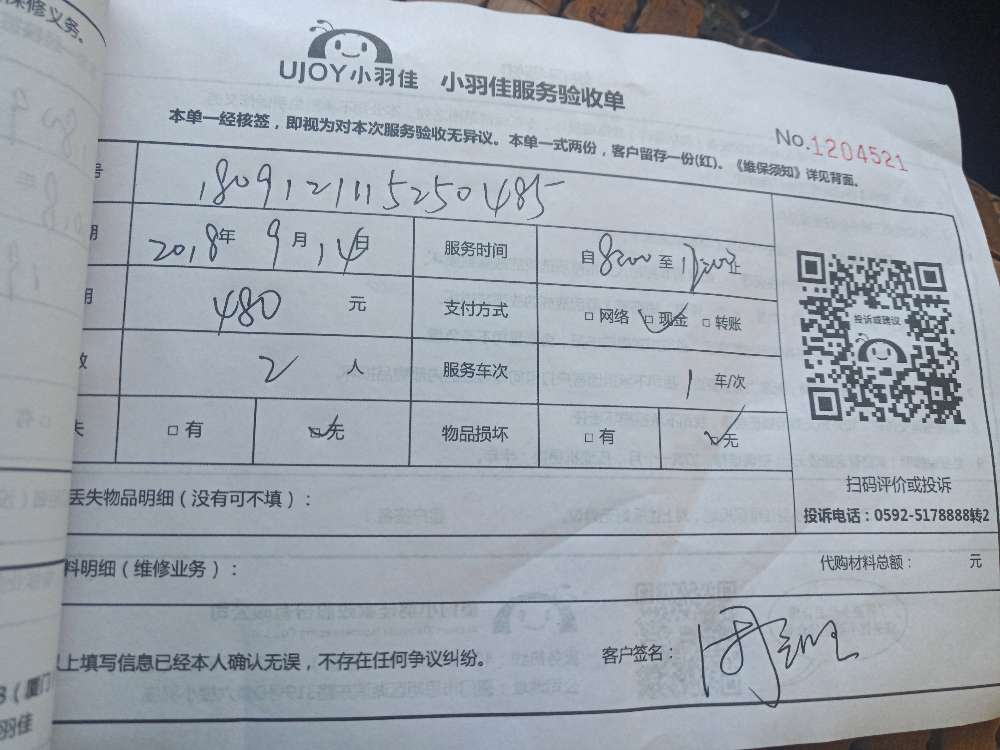 保修义务。
UJOY小羽佳 小羽佳服务验收单
No.1204521
本单一经核签，即视为对本次服务验收无异议。本单一式两份，客户留存一份(红)。《维保须知》详见背面。
号 18091211152501485
期 2018年 9月 14日 服务时间 自8:00 至 17:00止
用 480 元 支付方式 □ 网络 □ 现金 □ 转账
数 2 人 服务车次 1 车/次
失 □ 有 □ 无 物品损坏 □ 有 □ 无
投诉或建议
扫码评价或投诉
投诉电话：0592-5178888转2
丢失物品明细（没有可不填）：
料明细（维修业务）： 代购材料总额： 元
以上填写信息已经本人确认无误，不存在任何争议纠纷。 客户签名：
（厦门
羽佳